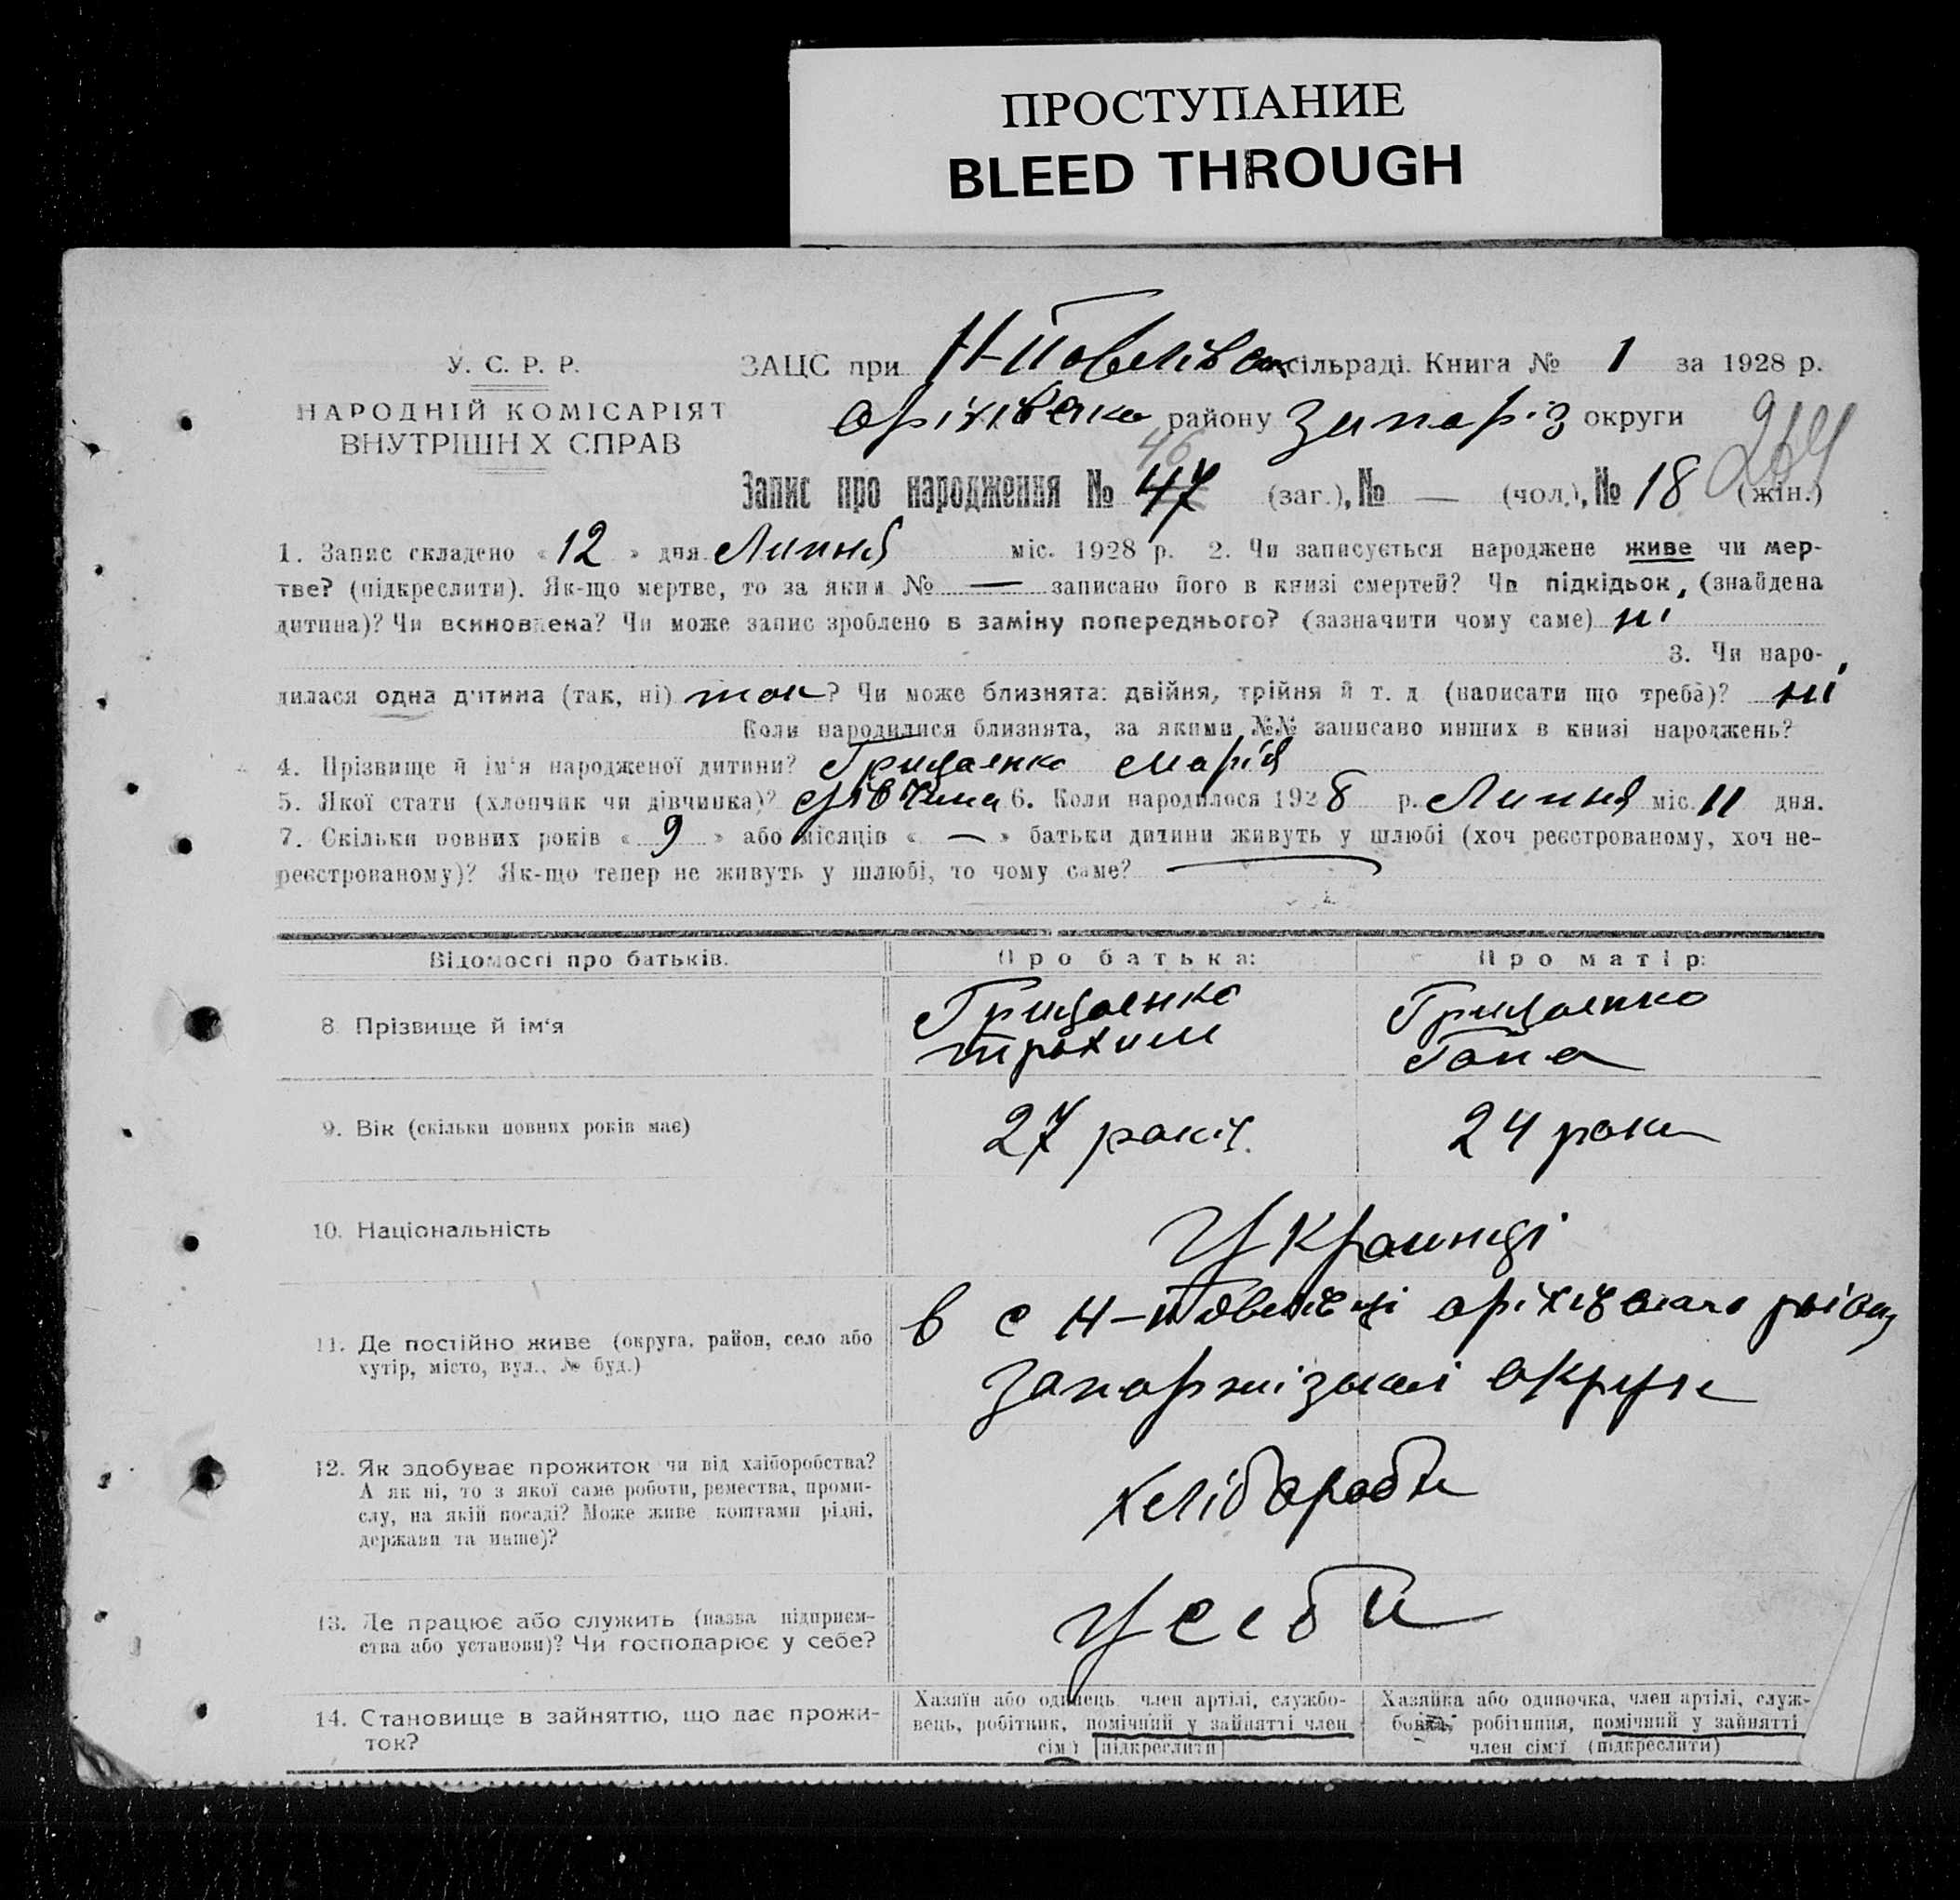 ПРОСТУПАНИЕ
BLEED THROUGH
У. С. Р. Р.
НАРОДНІЙ КОМІСАРІЯТ
ВНУТРІШН Х СПРАВ
ЗАЦС при Н-Повлівск сільраді. Книга № 1 за 1928 р.
Оріхівська району Запоріз округи
264
46
Запис про народження № 47 (заг.), № — (чол.), № 18 (жін.)
1. Запис складено « 12 » дня Липня міс. 1928 р. 2. Чи записується народжене живе чи мер-
тве? (підкреслити). Як-що мертве, то за яким № — записано його в книзі смертей? Чи підкідьок, (знайдена
дитина)? Чи всиновлена? Чи може запис зроблено в заміну попереднього? (зазначити чому саме) ні
3. Чи наро-
дилася одна дитина (так, ні) так? Чи може близнята: двійня, трійня й т. д. (написати що треба)? ні
Коли народилися близнята, за якими №№ записано инших в книзі народжень?
4. Прізвище й ім'я народженої дитини? Грицаенко Марія
5. Якої стати (хлопчик чи дівчинка)? дівчина 6. Коли народилося 1928 р. Липня міс. 11 дня.
7. Скільки повних років « 9 » або місяців « — » батьки дитини живуть у шлюбі (хоч реєстрованому, хоч не-
реєстрованому)? Як-що тепер не живуть у шлюбі, то чому саме? —
Відомості про батьків. Про батька: Про матір:
8. Прізвище й ім'я
Грицаенко Трохим
Грицаенко
9. Вік (скільки повних років має) 27 років. 24 роки
10. Національність Украинці
11. Де постійно живе (округа, район, село або
хутір, місто, вул., № буд.)
в с Н-Повлівці оріхівського
Запоріжської округи
12. Як здобуває прожиток чи від хліборобства?
А як ні, то з якої саме роботи, ремества, проми-
слу, на якій посаді? Може живе коштами рідні,
держави та инше)?
хлібороби
13. Де працює або служить (назва підприєм-
ства або установи)? Чи господарює у себе?
У себи
14. Становище в зайняттю, що дає прожи-
ток?
Хазяїн або одинець, член артілі, службо-
вець, робітник, помічний у зайнятті член
сім'ї (підкреслити)
Хазяйка або одиночка, член артілі, служ-
бовка, робітниця, помічний у зайнятті
член сім'ї (підкреслити)